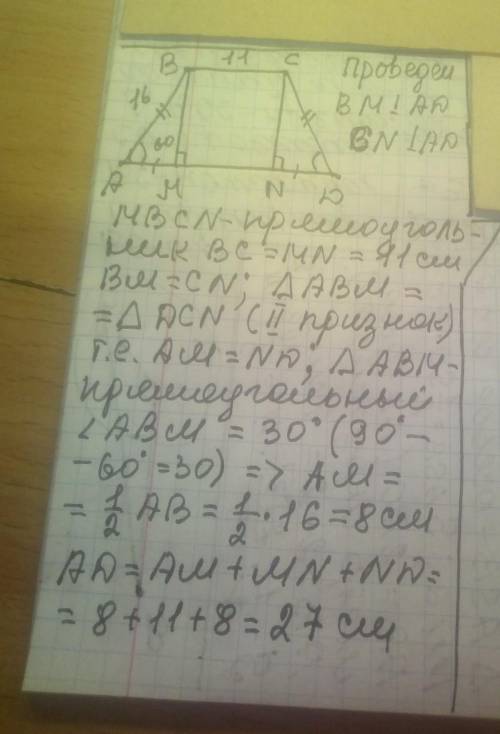 B 11 C
16
60
A M N D
Проведем
BM⊥AD
CN⊥AD
MBCN-прямоуголь-
ник BC=MN=11см
BM=CN; ΔABM=
=ΔDCN (II признак)
т.е. AM=ND; ΔABM-
прямоугольный
∠ABM = 30° (90°-
-60°=30) => AM=
= 1/2 AB = 1/2 · 16 = 8 см
AD = AM + MN + ND =
= 8 + 11 + 8 = 27 см